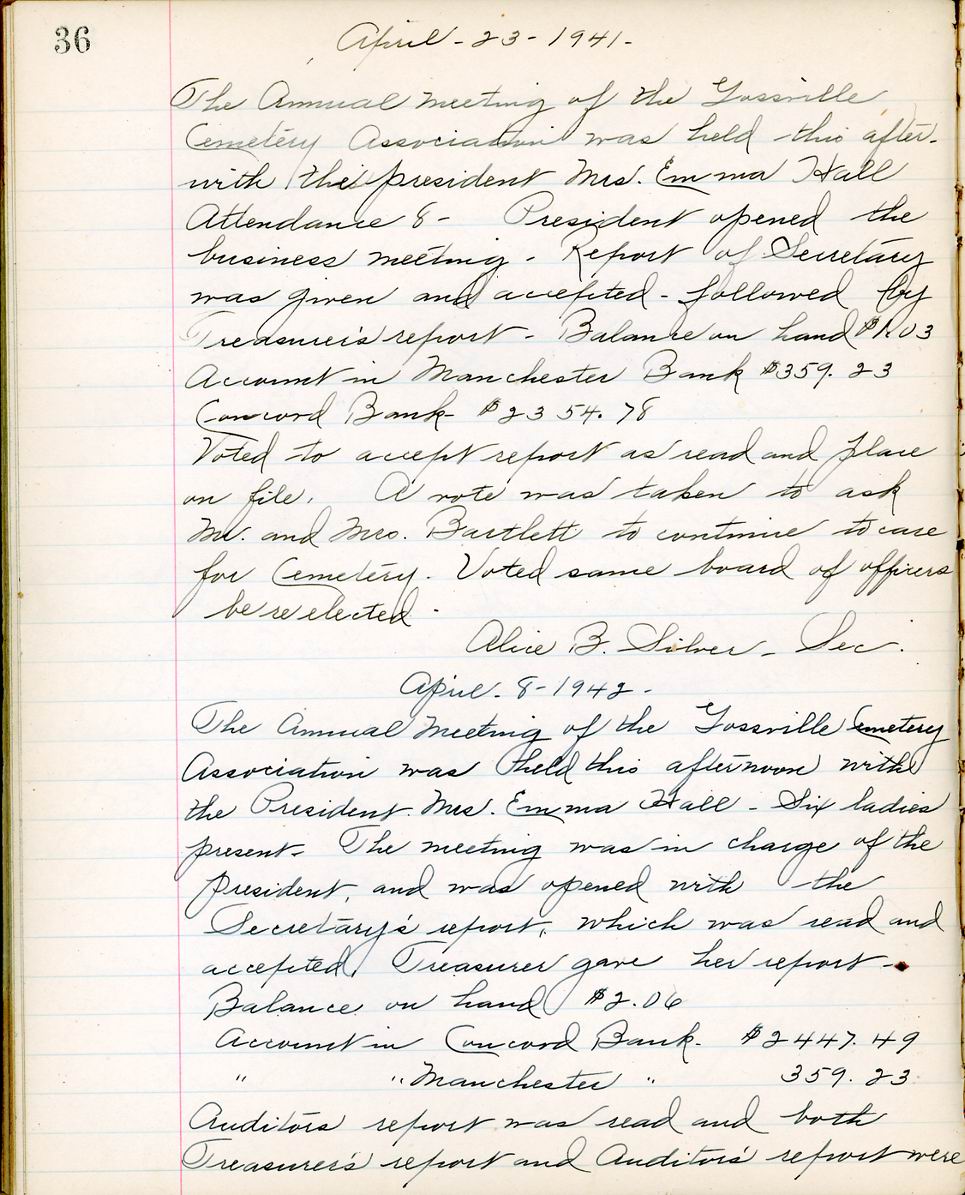 36
April - 23 - 1941 -
The Annual meeting of the Gossville
Cemetery Association was held this after-
with the president Mrs. Emma Hall
Attendance 8 - President opened the
business meeting - Report of Secretary
was given and accepted - followed by
Treasurer's report - Balance on hand $1.03
Account in Manchester Bank $359.23
Concord Bank - $2354.78
Voted to accept report as read and place
on file. A vote was taken to ask
Mr. and Mrs. Bartlett to continue to care
for Cemetery. Voted same board of officers
be reelected -
Alice B. Silver - Sec.
April - 8 - 1942 -
The Annual Meeting of the Gossville Cemetery
Association was held this afternoon with
the President Mrs. Emma Hall - Six ladies
present - The meeting was in charge of the
President, and was opened with the
Secretary's report, which was read and
accepted. Treasurer gave her report -
Balance on hand $2.06
Account in Concord Bank - $2447.49
" " Manchester " 359.23
Auditors report was read and both
Treasurer's report and Auditors' report were